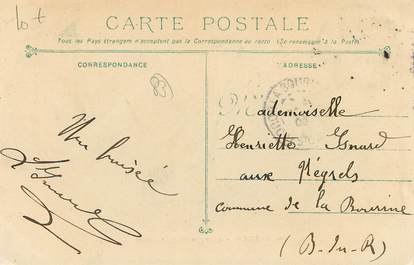 lot
CARTE POSTALE
Tous les Pays étrangers n'acceptent pas la Correspondance au recto (Se renseigner à la Poste)
CORRESPONDANCE
ADRESSE
83
Un baiser
Mademoiselle
Henriette Isnard
aux Négrels
commune de la Bourine
(B-du-R)